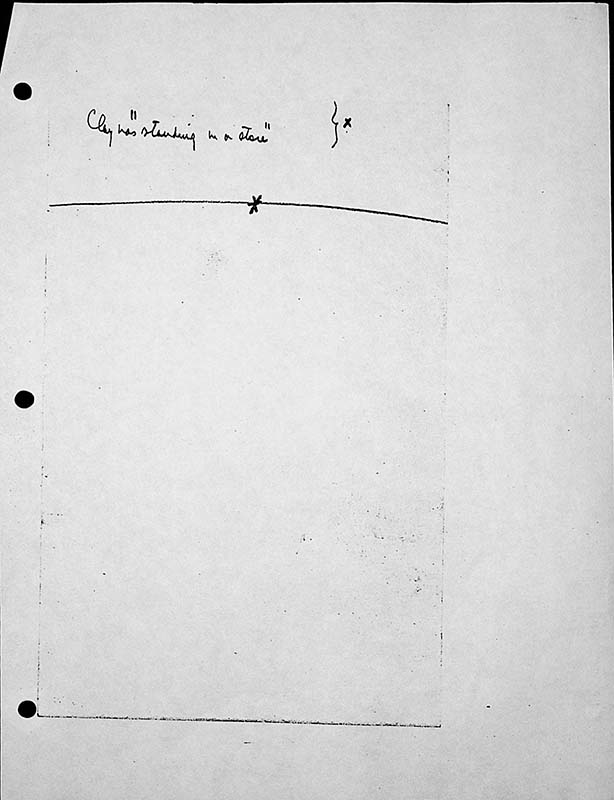 Clay was "standing in a store" } x
x